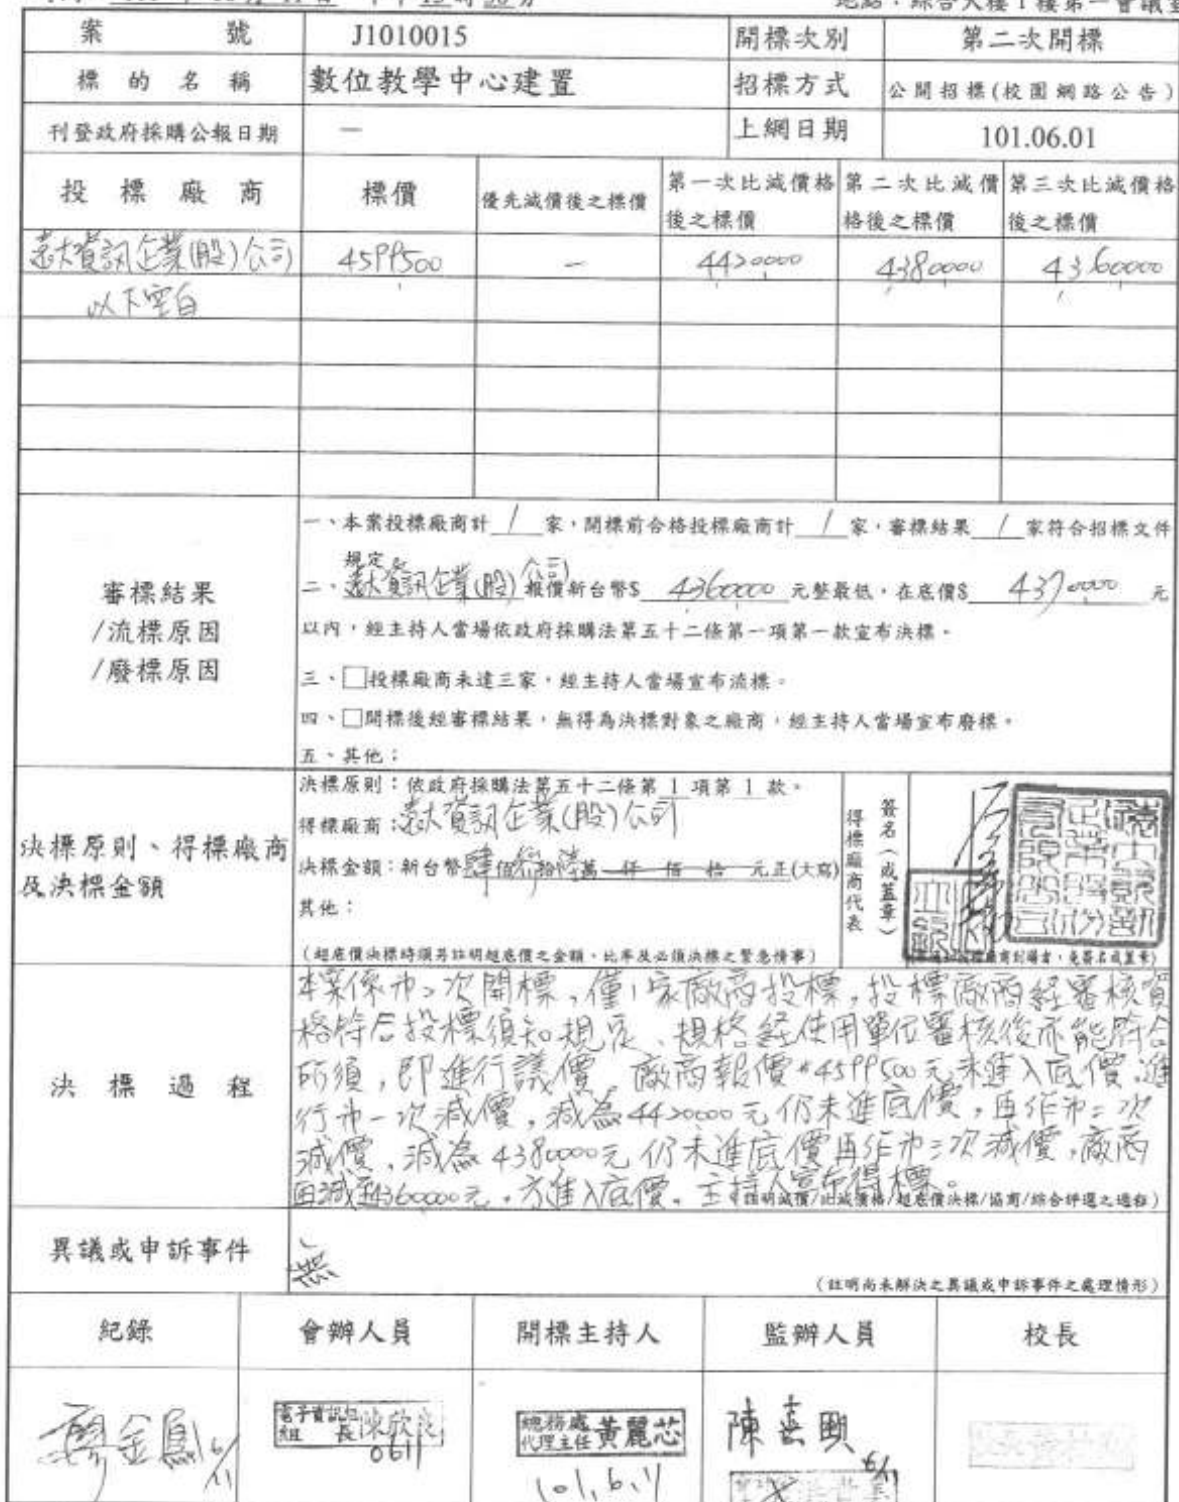 地點：綜合大樓1樓第一會議室
案號 J1010015 開標次別 第二次開標
標的名稱 數位教學中心建置 招標方式 公開招標(校園網路公告)
刊登政府採購公報日期 — 上網日期 101.06.01
投標廠商 標價 優先減價後之標價 第一次比減價格後之標價 第二次比減價格後之標價 第三次比減價格後之標價
遠大資訊企業(股)公司 4599500 — 4420000 4380000 4360000
以下空白
審標結果/流標原因/廢標原因
一、本案投標廠商計 1 家，開標前合格投標廠商計 1 家，審標結果 1 家符合招標文件
規定。
二、遠大資訊企業(股)公司 報價新台幣$ 4360000 元整最低，在底價$ 4370000 元
以內，經主持人當場依政府採購法第五十二條第一項第一款宣布決標。
三、□投標廠商未達三家，經主持人當場宣布流標。
四、□開標後經審標結果，無得為決標對象之廠商，經主持人當場宣布廢標。
五、其他：
決標原則、得標廠商及決標金額
決標原則：依政府採購法第五十二條第 1 項第 1 款。
得標廠商：遠大資訊企業(股)公司
決標金額：新台幣肆佰參拾陸萬 仟 佰 拾 元正(大寫)
其他：
(超底價決標時須另註明超底價之金額、比率及必須決標之緊急情事)
得標廠商代表
簽名(或蓋章)
決標過程
本案係第二次開標，僅1家廠商投標，投標廠商經審核資
格符合投標須知規定、規格經使用單位審核後亦能符合
所須，即進行議價，廠商報價4599500元未進入底價，進
行第一次減價，減為4420000元仍未進底價，再作第二次
減價，減為4380000元仍未進底價再作第三次減價，廠商
再減至4360000元，方進入底價。主持人宣布得標。
(註明減價/比減價格/超底價決標/協商/綜合評選之過程)
異議或申訴事件 無
(註明尚未解決之異議或申訴事件之處理情形)
紀錄 會辦人員 開標主持人 監辦人員 校長
廖金鳳 6/11
電子資訊組組長 陳欣良
0611
總務處代理主任 黃麗芯
101.6.11
6/11